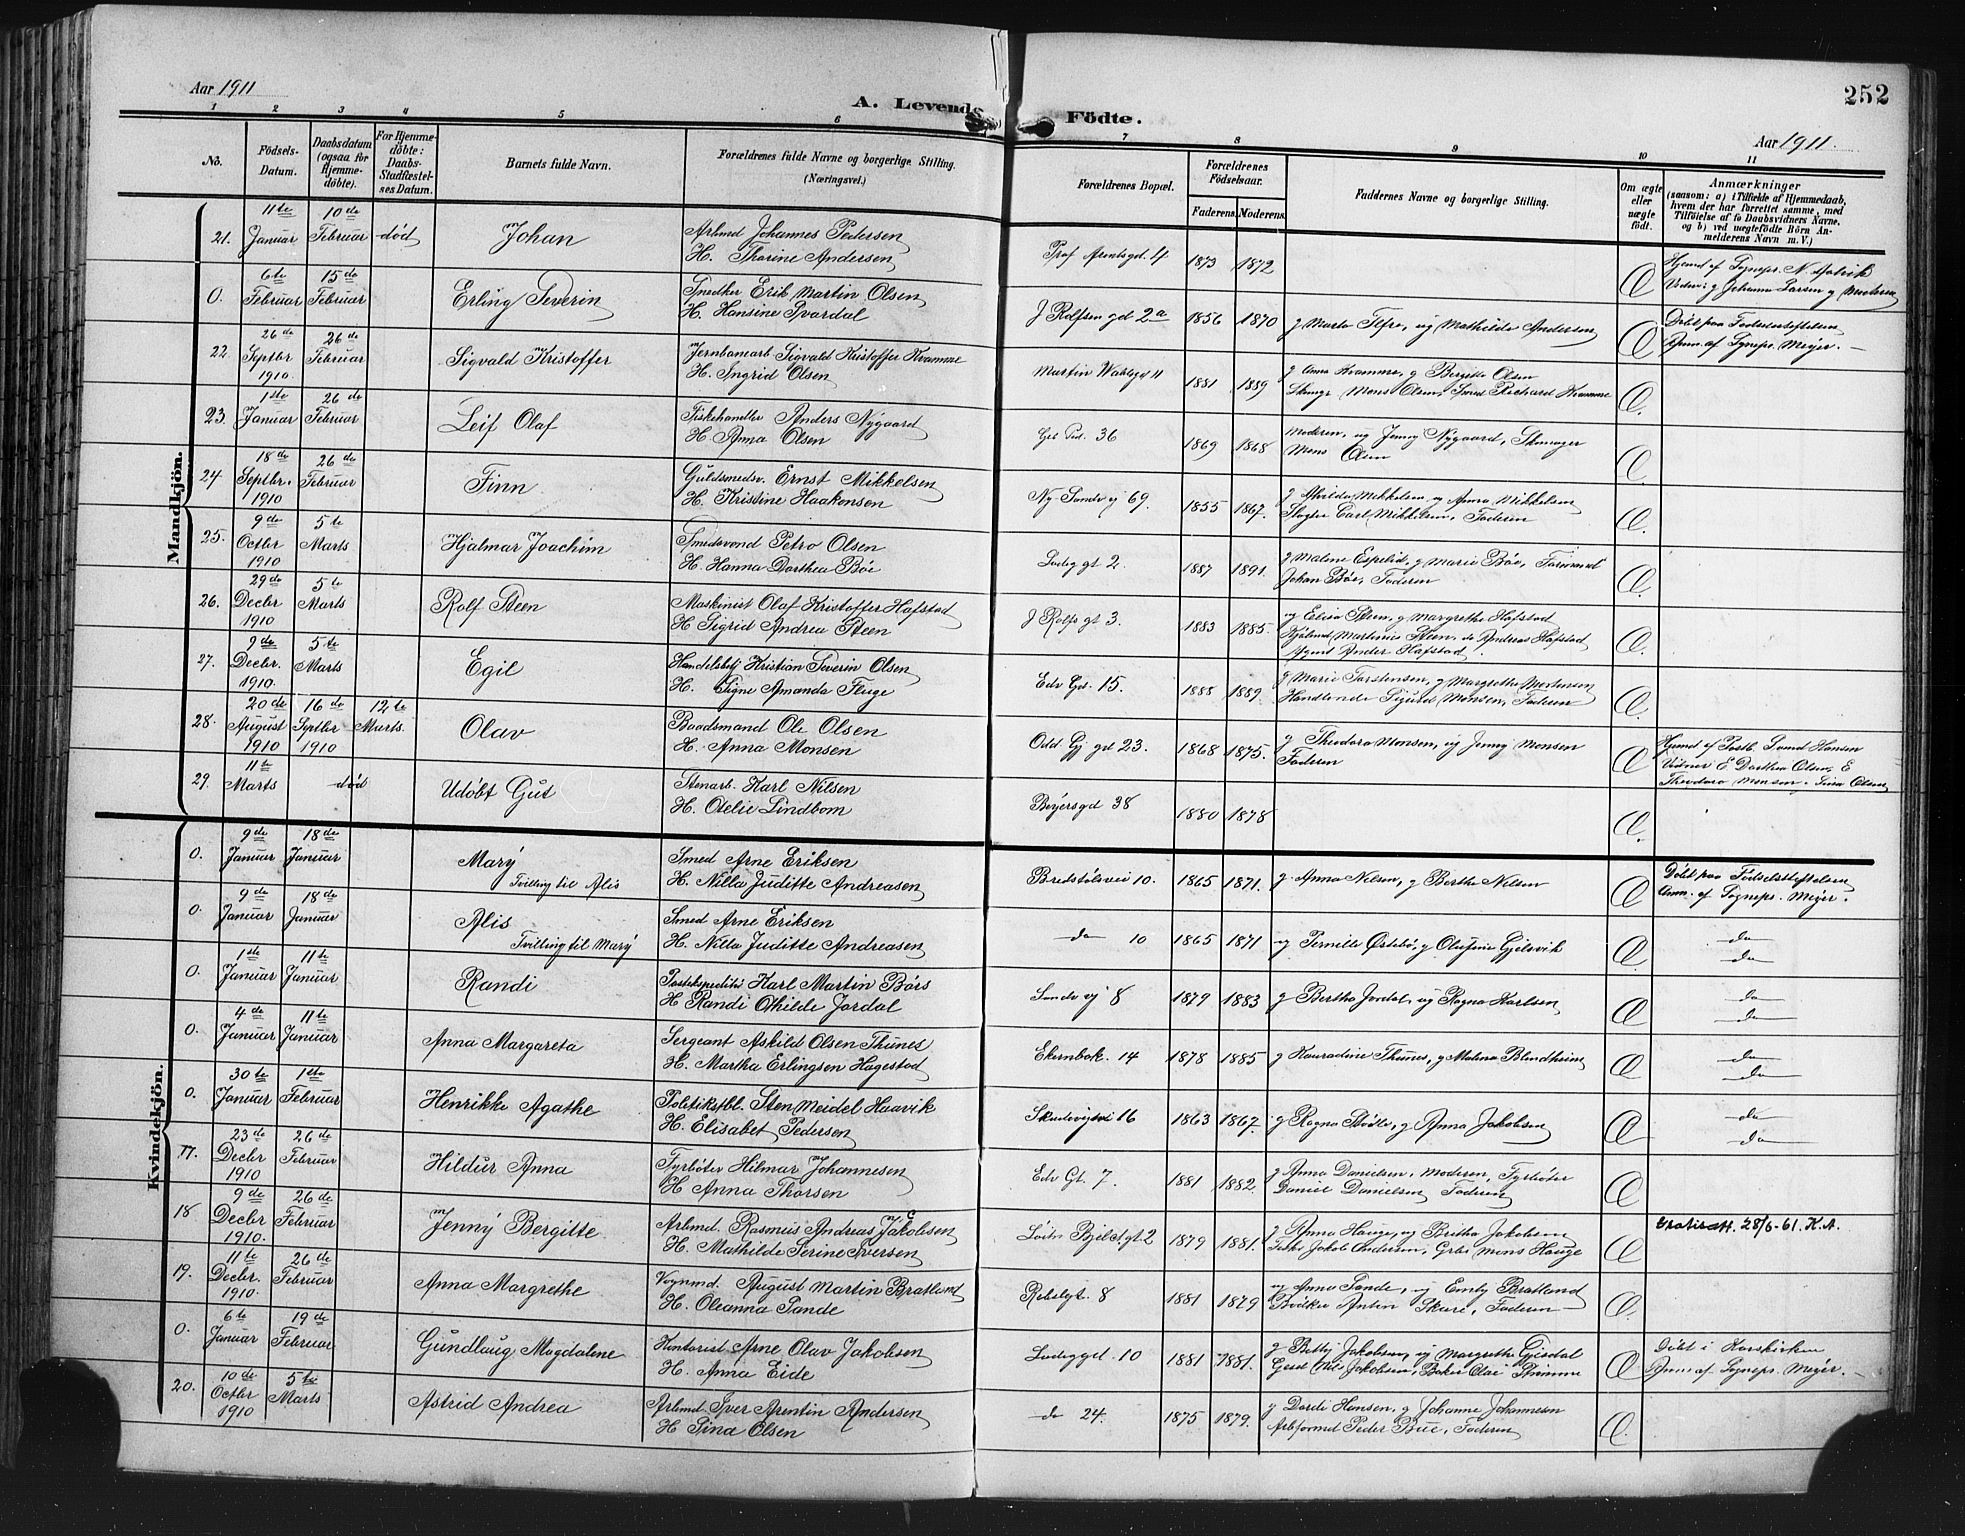 Aar 1911
A. Levende Födte.
252
Aar 1911.
1 2 3 4 5 6 7 8 9 10 11
No.
Födsels-Datum.
Daabsdatum (ogsaa for Hjemmedöbte).
For Hjemmedöbte: Daabs-Stadfæstelses Datum.
Barnets fulde Navn.
Forældrenes fulde Navne og borgerlige Stilling. (Næringsvei.)
Forældrenes Bopæl.
Forældrenes Födselsaar.
Faderens. Moderens.
Faddernes Navne og borgerlige Stilling.
Om ægte eller uægte födt.
Anmærkninger
(saasom: a) i Tilfælde af Hjemmedaab, hvem der har forrettet samme, med Tilföielse af to Daabsvidners Navne, og b) ved uægtefödte Börn Anmelderens Navn m. V.)
Mandkjön.
21. 11te Januar 10de Februar död Johan Arbmd Johannes Pedersen
H. Thorine Andersen Prof Arentsgd. 4 1873 1872 Hjemd af Sognepr.
0. 6te Februar 15de Februar Erling Severin Snedker Erik Martin Olsen
H. Hansine Svardal J Rolfsen gd 2a 1856 1870 og Mathilde Andersen Döbt paa Födselsstiftelsen
Anm. af Sognepr. Meyer.
22 26de Septbr 1910. 26de Februar Sigvald Kristoffer Jernbanearb Sigvald Kristoffer Kvamme
H. Ingrid Olsen Martin Wahlsgd 11 1881 1889 g Anna Kvamme, g Bergitte Olsen
Mons Olsen, Smed Richard Kvamme
23. 1ste Januar 26de Februar Leif Olaf Fiskehandler Anders Nygaard
H. Anna Olsen 36 1869 1868 Moderen, og Jenny Nygaard, Skomager
Mons Olsen
24. 18de Septbr. 1910 26de Februar Finn Guldsmedsv. Ernst Mikkelsen
H. Kristine Haakonsen Ny Sandv vj 69. 1855 1867. Mikkelsen, og Anna Mikkelsen
Carl Mikkelsen, Faderen
25. 9de Octbr 1910 5te Marts Hjalmar Joachim Smedsvend Petro Olsen
H. Hanna Dorthea Böe Lodeg gt 2. 1887 1891. g Malene Espelid, g Marie Böe,
Johan Böe, Faderen
26. 29de Decbr 1910 5te Marts Rolf Steen Maskinist Olaf Kristoffer Hafstad
H Sigrid Andrea Steen J Rolfs gt 3. 1883 1885. Steen, g Margrethe Hafstad
Martinius Steen, do Andreas Hafstad
Hafstad.
27. 9de Decbr. 1910. 5te Marts Egil Handelsbetj Kristian Severin Olsen
H. Signe Amanda Fluge Edv Gd. 15. 1888 1889. g Marie Torstensen, g Margrethe Mortensen
Handlende Sigurd Monsen, Faderen
28. 20de August 1910 16de Septbr 1910 12te Marts. Olav Baadsmand Ole Olsen
H. Anna Monsen Odd. Gj gd 23. 1868 1875. g Theodora Monsen, og Jenny Monsen
Faderen Hansen
Vidner E Dorthea Olsen, E
Theodora Monsen, Olsen
29. 11te Marts död Udöbt Gut Stenarb. Karl Nilsen
H. Otelie Lindbom Beyersgd 38 1880 1878
Kvindekjön.
0. 9de Januar 18de Januar Mary
Tvilling til Alis Smed Arne Eriksen
H. Nilla Juditte Andreasen Bredstölsvei 10. 1865 1871. g Anna Nilsen, g Berthe Nilsen Döbt paa Födselsstiftelsen
Anm. af Sognepr. Meyer.
0. 9de Januar 18de Januar Alis
Tvilling til Mary Smed Arne Eriksen
H. Nilla Juditte Andreasen do 10 1865 1871 og Pernille Östebö, g Olufine Gjelsvik do
do
0. 1ste Januar 11te Januar Randi Postekspeditör Karl Martin Börs
H Randi Othilde Jordal Sandv vj 8 1879 1883 g Bertha Jordal, og Ragna Karlsen do
do
0. 4de Januar 11te Januar Anna Margareta Sergeant Askild Olsen Thunes
H. Martha Erlingsen Hagestad 14 1878 1885 g Konradine Thunes, g Malena Blindheim do
do
0. 30te Januar 1ste Februar Henrikke Agathe Politikstbl. Sten Meidel Haavik
H. Elisabet Pedersen Skudevigsvei 16 1863 1867. g Ragna g Anna Jakobsen do
do
17. 23de Decbr 1910 26de Februar Hildur Anna Fyrböter Hilmar Johannesen
H Anna Thorsen Edv Gt. 7 1881 1882. g Anna Danielsen, Moderen, Fyrböter
Daniel Danielsen, Faderen
18 9de Decbr. 1910. 26de Februar Jenny Bergitte Arbmd. Rasmus Andreas Jakobsen
H. Mathilde Serine Iversen 2 1879 1881. g Anna Hauge, og Britha Jakobsen
Jakob Andersen, Mons Hauge 28/6-61. K.A.
19. 11te Decbr. 1910. 26de Februar Anna Margrethe Vognmd. August Martin Bratlund
H. Oleanna Sande 8 1881 1879 og Anna Sande, og Emly Bratland
Bödker Antin Skare, Faderen
0. 6te Januar 19de Februar Gundlaug Magdalene Kontorist Arne Olav Jakobsen
H. Anna Eide Lodeg gd. 10 1881 1881. g Betty Jakobsen, og Margrethe Gjesdal
Jakobsen, Baker Olai Döbt i Korskirken
Anm af Sognepr. Meyer.
20. 10de Octbr 1910 5te Marts Astrid Andrea Arbmd Iver Arentin Andersen
H Sina Olsen do 24. 1875 1879. g Dordi Hansen, g Johanne Johannesen
Arbformd Peder Bue, Faderen